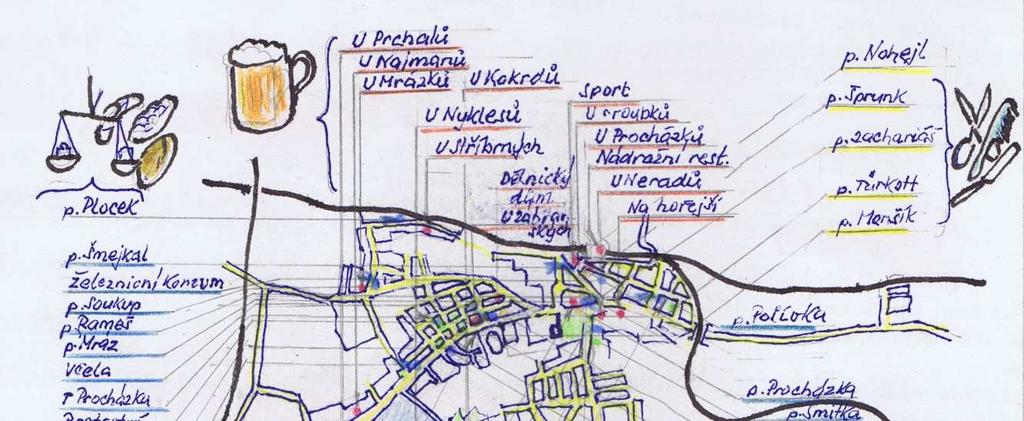 U Prchalů
U Najmanů
U Mrázků
U Kokrdů
U Nyklesů
U Stříbrných
Sport
U sroubků
U Procházků
Nádražní rest.
U Neradů
Na hořejší
Dělnický
dům
p. Nohejl
p. Šprunk
p. Zachariáš
p. Türkott
p. Menšík
p. Plocek
p. Šmejkal
Železniční Konzum
p. Soukup
p. Rameš
p. Mráz
Včela
p. Procházka
p. Polívka
p. Procházka
p. Smitka